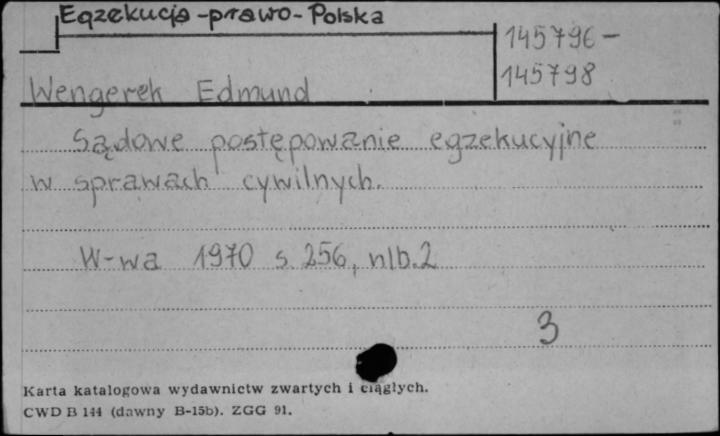 Egzekucja-prawo-Polska
145796-
145798
Wengerek Edmund
Sądowe postępowanie egzekucyjne
w sprawach cywilnych.
W-wa 1970 s. 256, nlb. 2
3
Karta katalogowa wydawnictw zwartych i ciągłych.
CWD B 144 (dawny B-15b). ZGG 91.